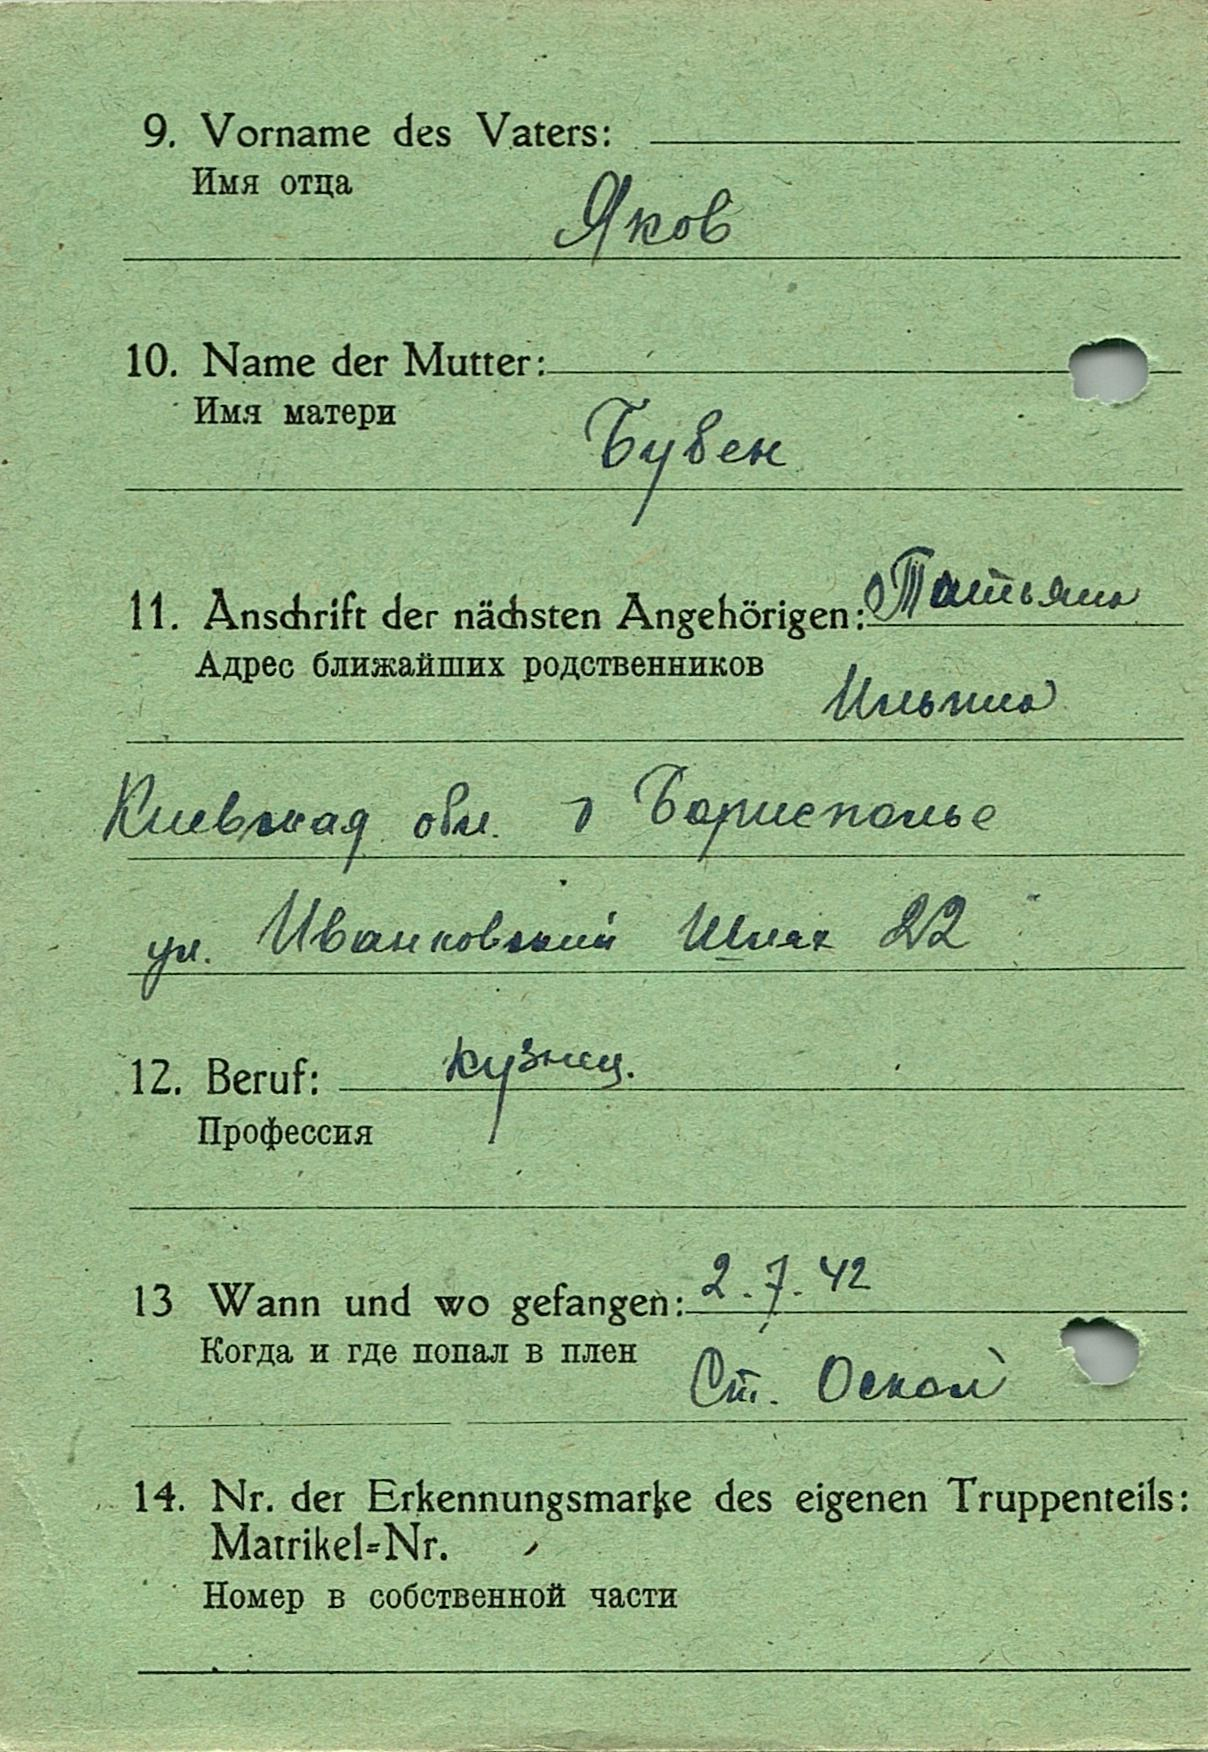 9. Vorname des Vaters:
Имя отца
Яков
10. Name der Mutter:
Имя матери
Бубен
11. Anschrift der nächsten Angehörigen: Татьяна
Адрес ближайших родственников
Ильина
Киевская обл. г Борисполье
ул. Иванковский Шлях 22
12. Beruf: кузнец.
Профессия
13 Wann und wo gefangen: 2.7.42
Когда и где попал в плен
Ст. Оскол
14. Nr. der Erkennungsmarke des eigenen Truppenteils:
Matrikel=Nr.
Номер в собственной части